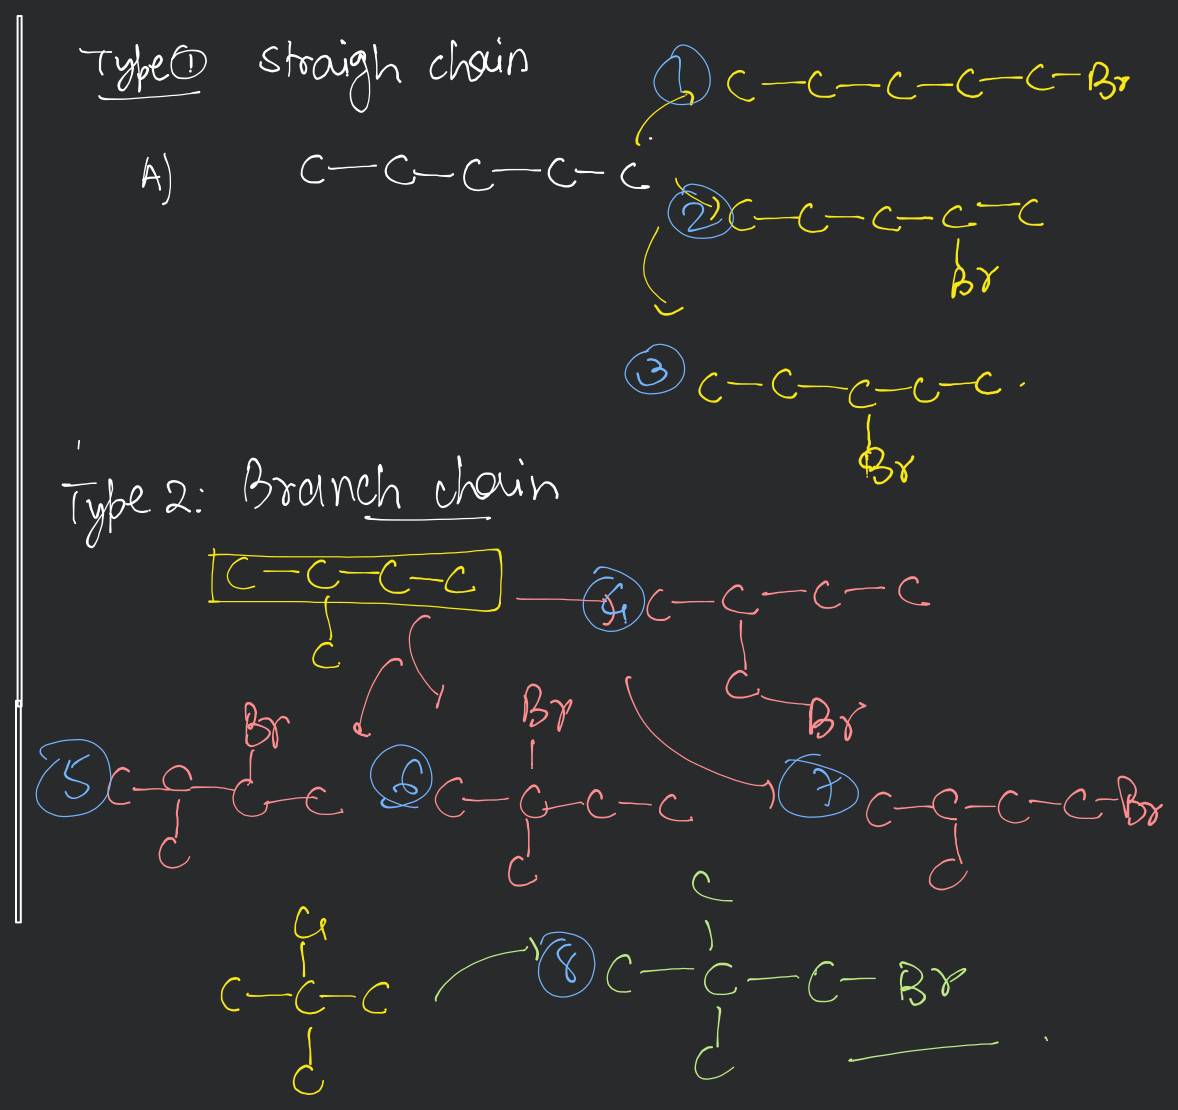 Type ① straigh chain
① C — C — C — C — C — Br
A) C — C — C — C — C
② C — C — C — C — C
Br
③ C — C — C — C — C .
Br
Type 2: Branch chain
C — C — C — C
C
④ C — C — C — C
C — Br
Br
⑤ C — C — C — C
C
Br
⑥ C — C — C — C
C
⑦ C — C — C — C — Br
C
C
C — C — C
C
C
⑧ C — C — C — Br
C